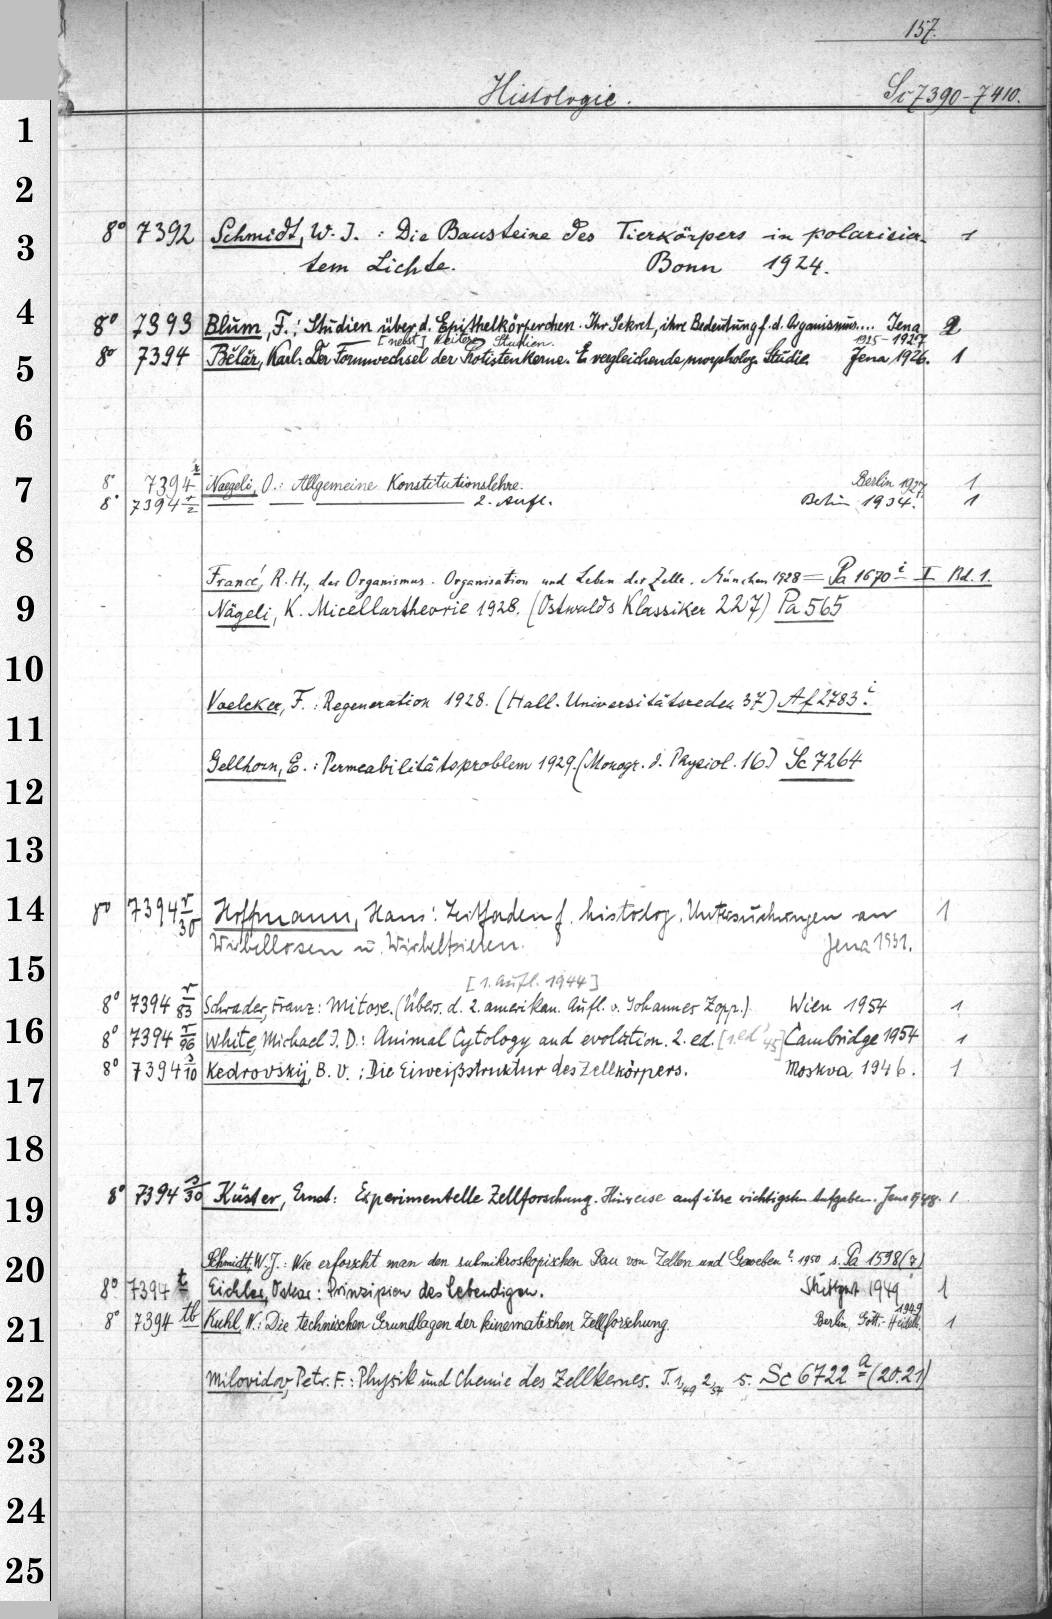 157.
Histologie. Sc 7390-7410.
1
2
3 8° 7392 Schmidt, W. J. : Die Bausteine des Tierkörpers in polarisier- 1
tem Lichte. Bonn 1924.
4 8° 7393 Blum, F.: Studien über d. Epithelkörperchen. Ihr Sekret, ihre Bedeutung f. d. Organismus.... Jena 2
[nebst] Weitere Studien. 1925-1927
5 8° 7394 Bělăr, Karl: Der Formwechsel der Protistenkerne. E vergleichende morpholog. Studie. Jena 1926. 1
6
7 8° 7394 r Naegeli, O.: Allgemeine Konstitutionslehre. Berlin 1927. 1
8° 7394 r/2 — — — 2. Aufl. Berlin 1934. 1
8
Francé, R. H., der Organismus. Organisation und Leben der Zelle. München 1928 = Pa 1670 i I Bd. 1.
9 Nägeli, K. Micellartheorie 1928. (Ostwalds Klassiker 227) Pa 565
10
Voelcker, F. : Regeneration 1928. (Hall. Universitätsreden 37) Af 2783 i.
11
Gellhorn, E. : Permeabilitätsproblem 1929. (Monogr. d. Physiol. 16) Sc 7264
12
13
14 8° 7394 r/30 Hoffmann, Hans: Leitfaden f. histolog. Untersuchungen an 1
Wirbellosen u. Wirbeltieren. Jena 1931.
15
[1. Aufl. 1944]
8° 7394 r/83 Schrader, Franz: Mitose. (Übers. d. 2. amerikan. Aufl. v. Johannes Zopp.) Wien 1954 1
16 8° 7394 r/96 White, Michael J. D.: Animal Cytology and evolution. 2. ed. [1. ed. 45] Cambridge 1954 1
8° 7394 s/10 Kedrovskij, B. V. : Die Eiweißstruktur des Zellkörpers. Moskva 1946. 1
17
18
19 8° 7394 s/30 Küster, Ernst: Experimentelle Zellforschung. Hinweise auf ihre wichtigsten Aufgaben. Jena 1
20 Schmidt, W. J.: Wie erforscht man den submikroskopischen Bau von Zellen und Geweben? 1950 s. Pa 1598 (7)
8° 7394 t Eichler, Oskar: Prinzipien des Lebendigen. Stuttgart 1949 1
21 8° 7394 tb Kuhl, W.: Die technischen Grundlagen der kinematischen Zellforschung. Berlin, Gött., Heidelb. 1949 1
22 Milovidov, Petr. F. : Physik und Chemie des Zellkernes. T. 1,49 2,54 s. Sc 6722 a (20.21)
23
24
25